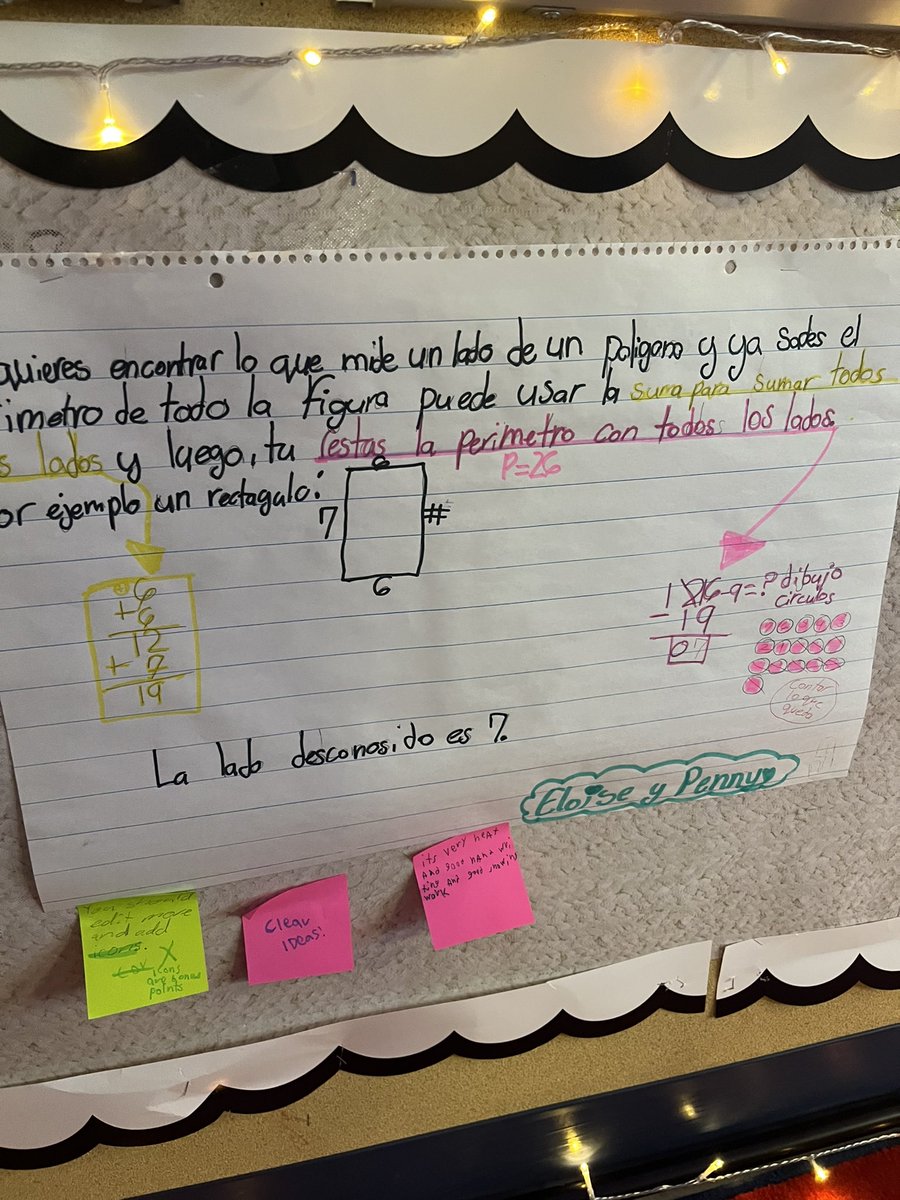 quieres encontrar lo que mide un lado de un poligono y ya sabes el
imetro de todo la figura puede usar la suma para sumar todos
s lados y luego, tu restas la perimetro con todos los lados.
P=26
or ejemplo un rectagalo:
6
7
#
6
6
+6
12
+7
19
126-9=? dibujo
circulos
-19
07
Contar
lo que
quedo
La lado desconosido es 7.
Eloise y Penny
edit more
and add
icons.
icons
points
Clear
IDEAS!
its very neat
And good hand wri
ting And good showing
work